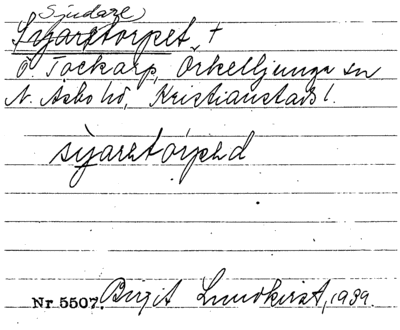 Sjudare)
Syaretorpet +
Ö. Tockarp, Örkelljunga sn
N. Åsbo hd, Kristianstads l.
syaretorped
Nr 5507. Birgit Lundkvist, 1939.